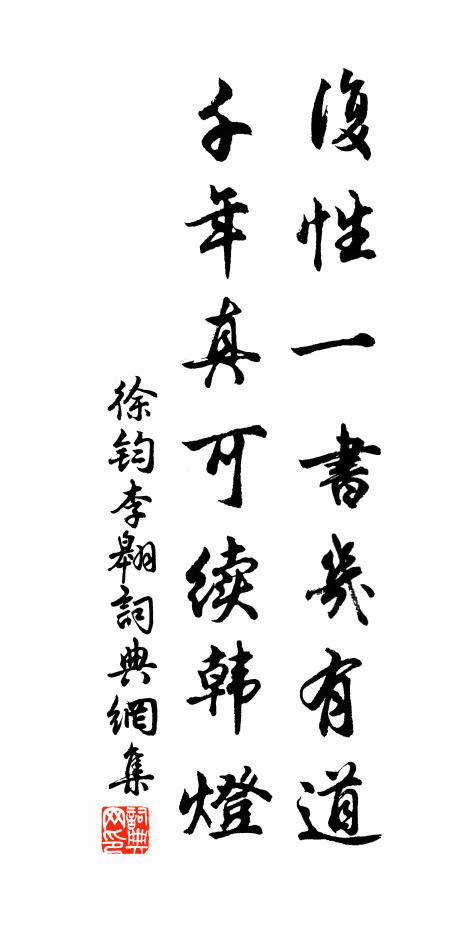 復性一書幾有道
千年真可续韩燈
徐钧李翱詞典網集
詞典网印